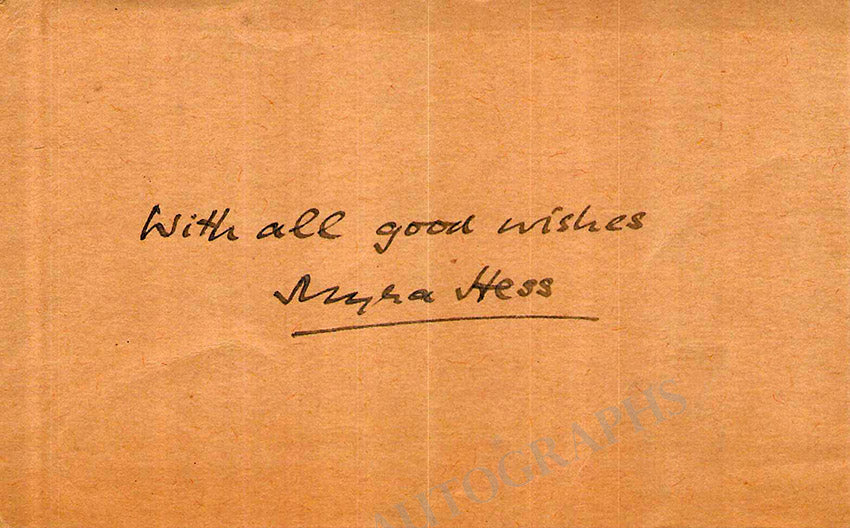 With all good wishes
Myra Hess
AUTOGRAPHS